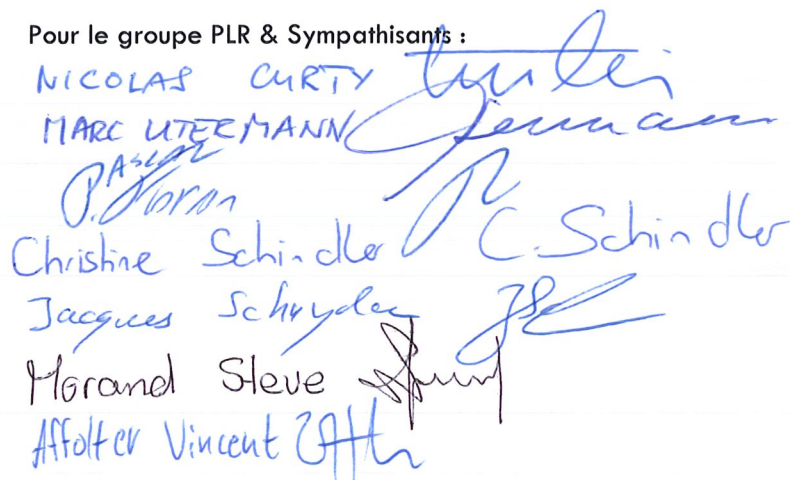 Pour le groupe PLR & Sympathisants :
NICOLAS CURTY
MARC UTERMANN
PASCAL
Christine Schindler C. Schindler
Jacques Schnyder
Morand Steve
Affolter Vincent